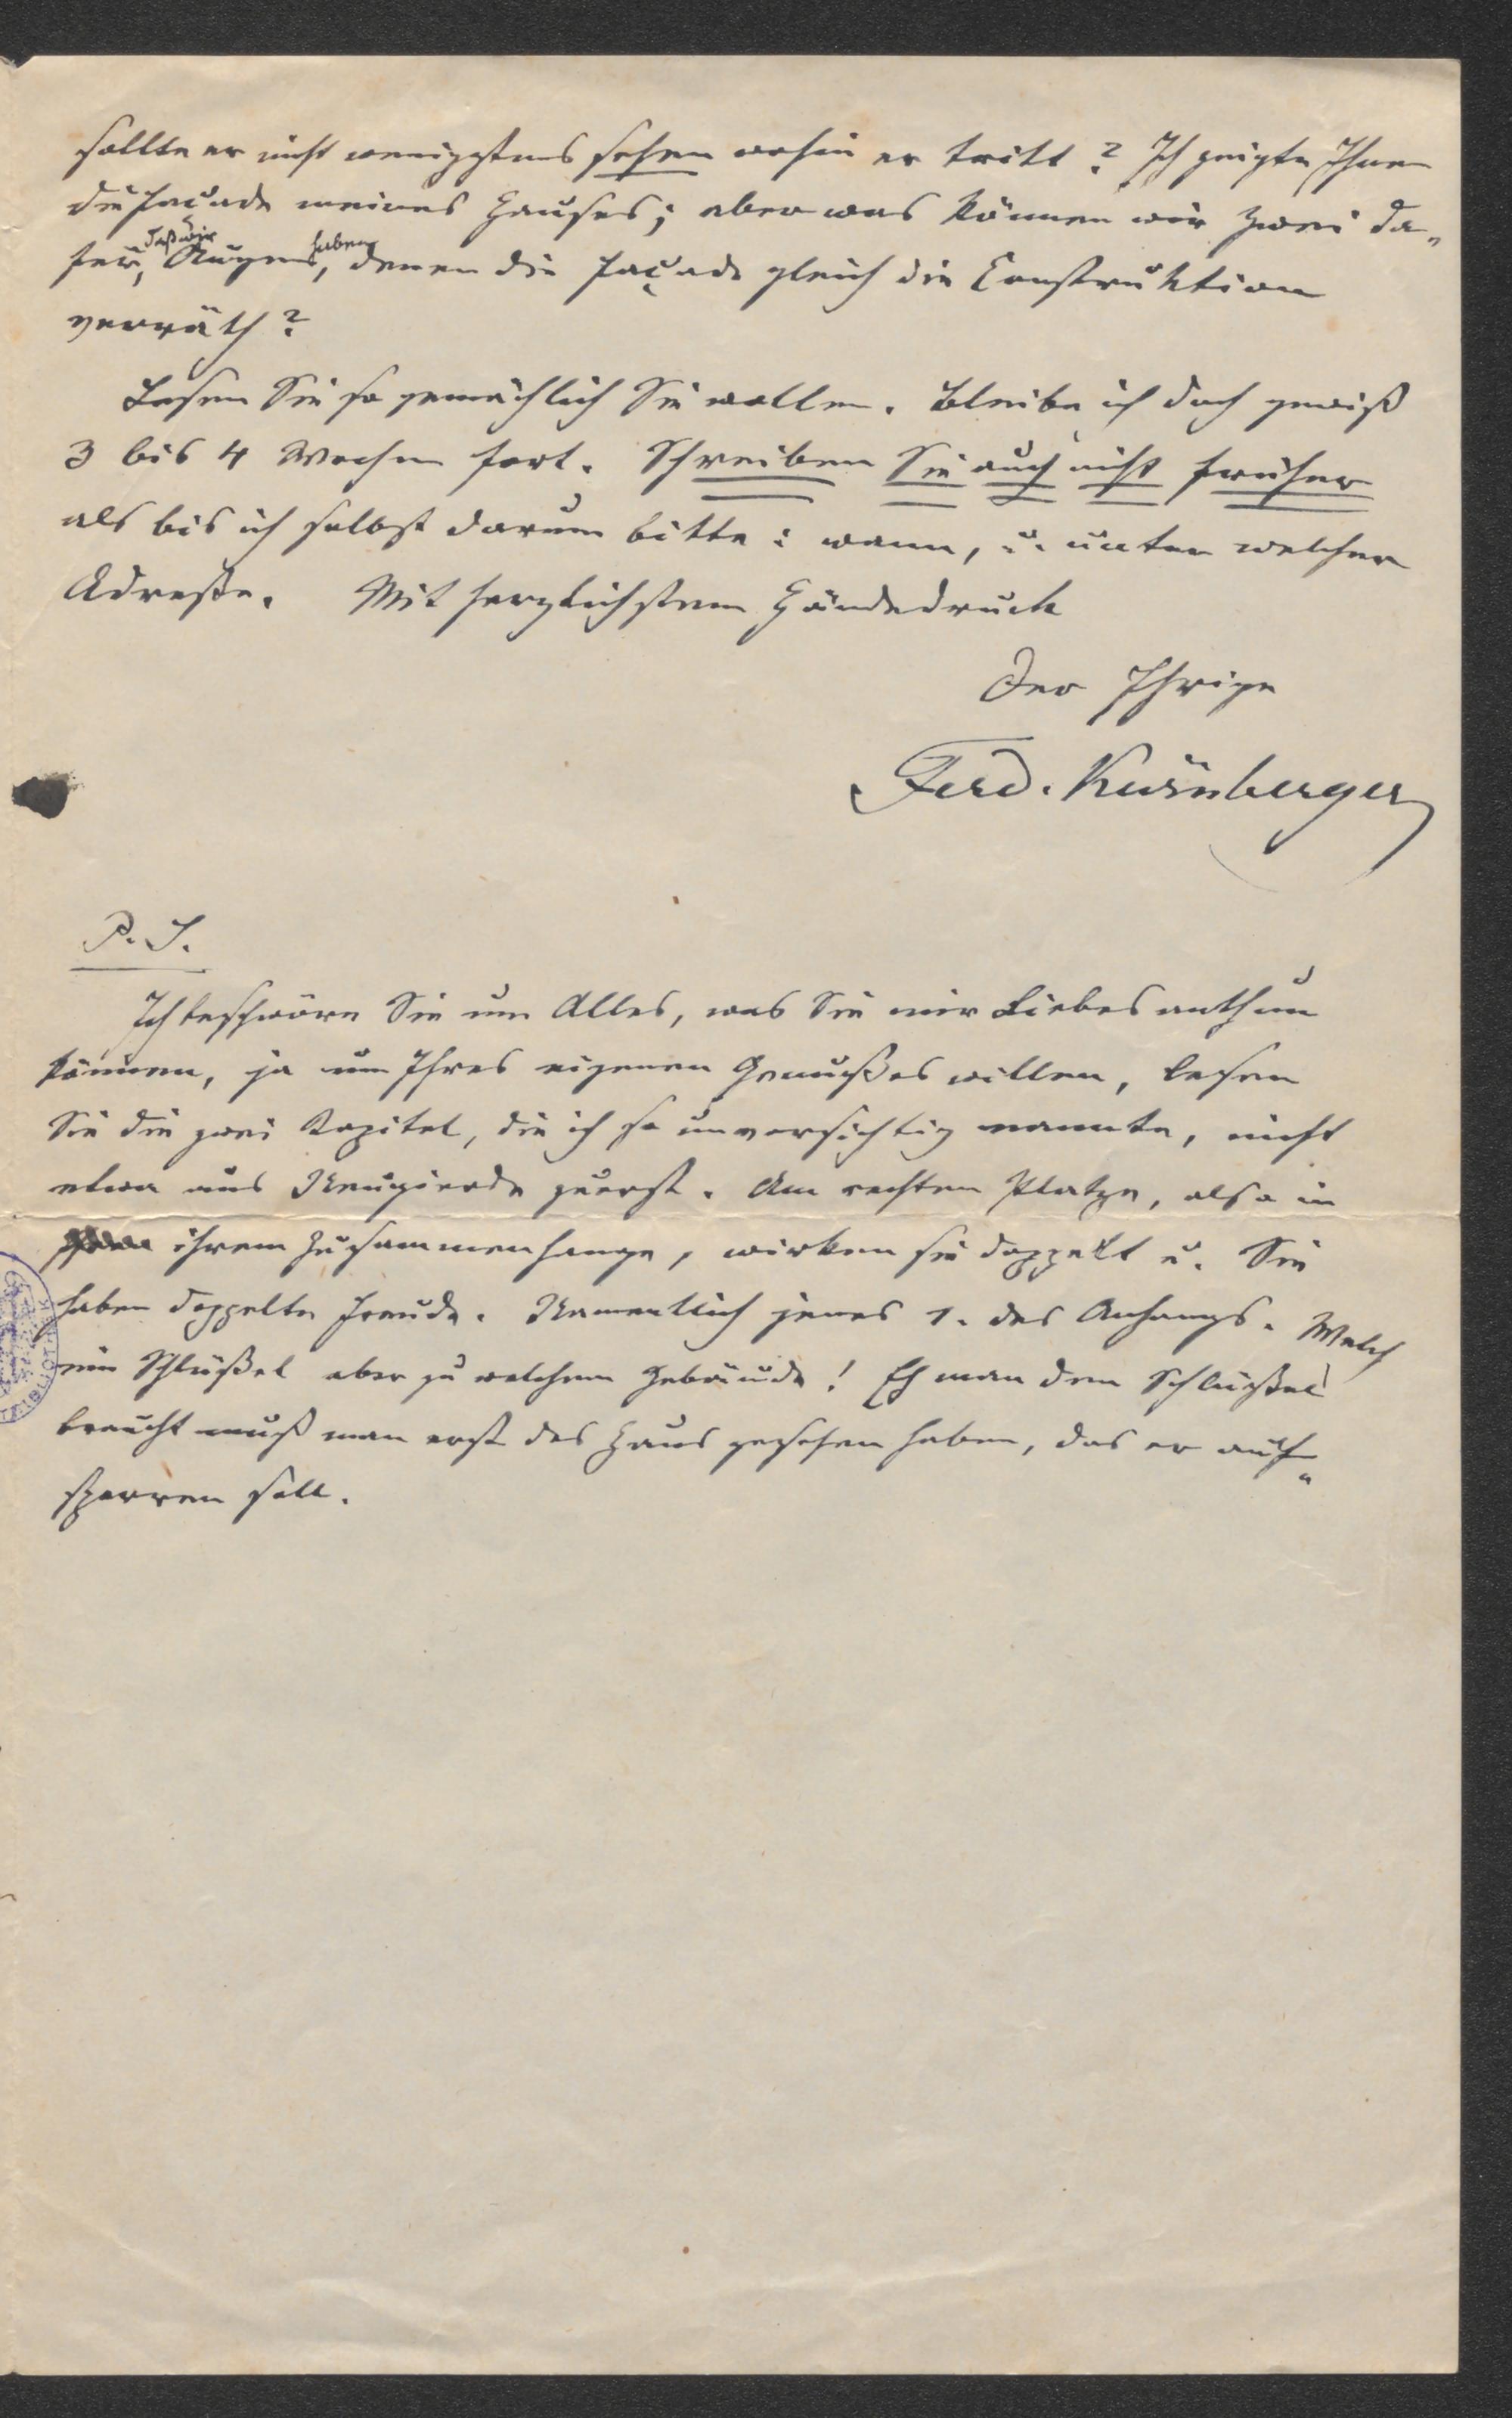 sollte er nicht wenigstens sehen wohin er tritt? Ich zeigte Ihnen
die Façade meines Hauses; aber was können wir zwei da„
für, daß wir Augen haben, denen die Façade gleich die Construktion
verräth?
Lesen Sie so gemächlich Sie wollen. Bleibe ich doch gewiß
3 bis 4 Wochen fort. Schreiben Sie auch nicht früher
als bis ich selbst darum bitte: wann, u. unter welcher
Adresse. Mit herzlichstem Händedruck
Der Ihrige
Ferd. Kürnberger
P. S.
Ich beschwöre Sie um Alles, was Sie mir Liebes anthun
können, ja um Ihres eigenen Genußes willen, lesen
Sie die zwei Kapitel, die ich so unvorsichtig nannte, nicht
etwa aus Neugierde zuerst. Am rechten Platze, also in
ihrem Zusammenhange, wirken sie doppelt u. Sie
haben doppelte Freude. Namentlich jenes 1. des Anhangs. Welch
ein Schlüßel aber zu welchem Gebäude! Eh man den Schlüßel
braucht muß man erst das Haus gesehen haben, das er auf„
sperren soll.